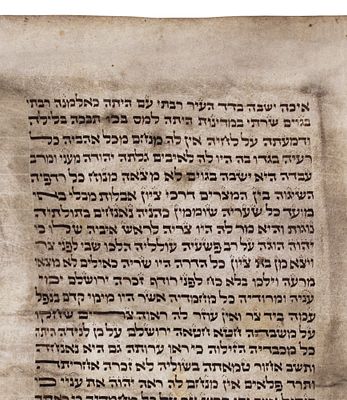 איכה ישבה בדד העיר רבתי עם היתה כאלמנה רבתי
בגוים שרתי במדינות היתה למס בכו תבכה בלילה
ודמעתה על לחיה אין לה מנחם מכל אהביה כל
רעיה בגדו בה היו לה לאיבים גלתה יהודה מעני ומרב
עבדה היא ישבה בגוים לא מצאה מנוח כל רדפיה
השיגוה בין המצרים דרכי ציון אבלות מבלי באי
מועד כל שעריה שוממין כהניה נאנחים בתולתיה
נוגות והיא מר לה היו צריה לראש איביה שלו כי
יהוה הוגה על רב פשעיה עולליה הלכו שבי לפני צר
ויצא מן בת ציון כל הדרה היו שריה כאילים לא מצאו
מרעה וילכו בלא כח לפני רודף זכרה ירושלם ימי
עניה ומרודיה כל מחמדיה אשר היו מימי קדם בנפל
עמה ביד צר ואין עוזר לה ראוה צרים שחקו
על משבתה חטא חטאה ירושלם על כן לנידה היתה
כל מכבדיה הזילוה כי ראו ערותה גם היא נאנחה
ותשב אחור טמאתה בשוליה לא זכרה אחריתה
ותרד פלאים אין מנחם לה ראה יהוה את עניי כי